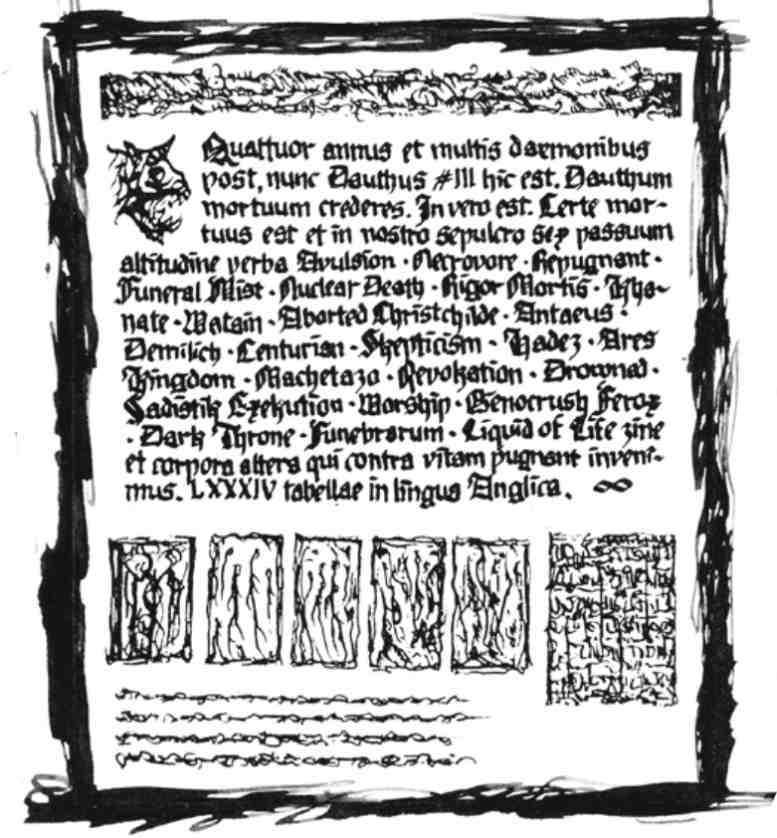 Quattuor annus et multis daemonibus
post, nunc Dauthus #III hic est. Dauthum
mortuum crederes. In vero est. Certe mor-
tuus est et in nostro sepulcro sex passuum
altitudine verba Avulsion · Necrovore · Repugnant ·
Funeral Mist · Nuclear Death · Rigor Mortis · Katha-
nate · Watain · Aborted Christchilde · Antaeus ·
Demilich · Centurian · Skepticism · Hadez · Ares
Kingdom · Machetazo · Revokation · Drowned ·
Sadistik Exekution · Worship · Genocrush Ferox
· Dark Throne · Funebrarum · Liquid of Life zine
et corpora altera qui contra vitam pugnant inveni-
mus. LXXXIV tabellae in lingua Anglica. ∞